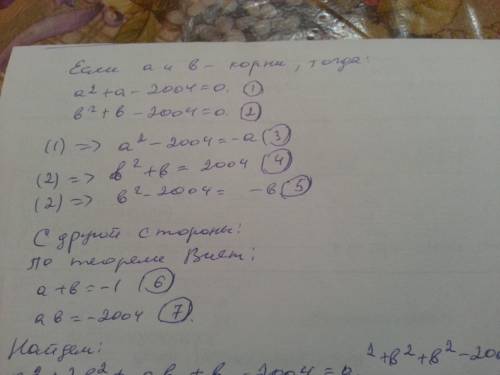 Если a и в - корни, тогда:
a² + a - 2004 = 0. ①
в² + в - 2004 = 0. ②
(1) => a² - 2004 = -a ③
(2) => в² + в = 2004 ④
(2) => в² - 2004 = -в ⑤
С другой стороны:
По теореме Виет:
a + в = -1 ⑥
a в = -2004 ⑦.
Найдем:
²+в²+в²-200
+ aв + в - 2004 = 0